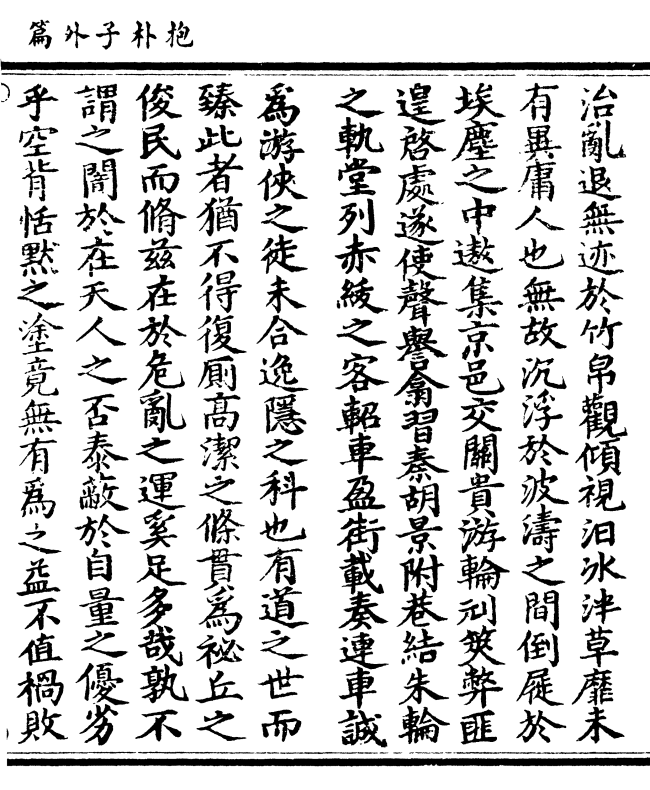 抱朴子外篇
治亂退無迹於竹帛觀傾視汨冰泮草靡未
有異庸人也無故沉浮於波濤之間倒屣於
埃塵之中遨集京邑交關貴游輪刓筴弊匪
遑啓處遂使聲譽翕習秦胡景附巷結朱輪
之軌堂列赤紱之客軺車盈街載奏連車誠
爲游俠之徒未合逸隱之科也有道之世而
臻此者猶不得復厠高潔之條貫爲祕丘之
俊民而脩兹在於危亂之運奚足多哉孰不
謂之闇於在天人之否泰蔽於自量之優劣
乎空背恬默之塗竟無有爲之益不值禍敗